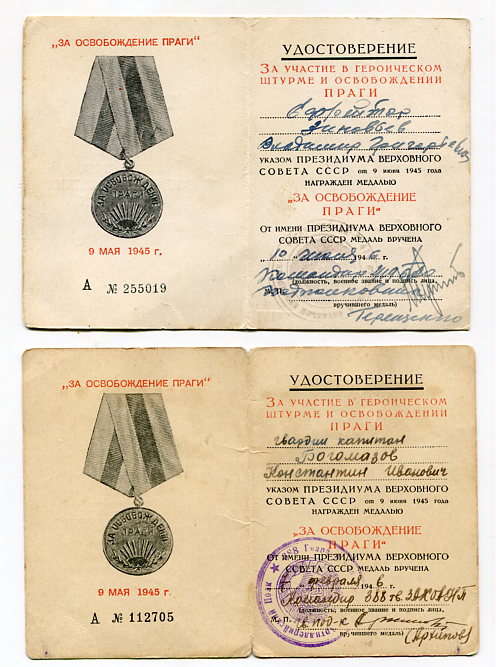 „ЗА ОСВОБОЖДЕНИЕ ПРАГИ"
9 МАЯ 1945 г.
А № 255019
УДОСТОВЕРЕНИЕ
ЗА УЧАСТИЕ В ГЕРОИЧЕСКОМ
ШТУРМЕ И ОСВОБОЖДЕНИИ
ПРАГИ
Ефрейтор
Зиновьев
Владимир Григорьевич
УКАЗОМ ПРЕЗИДИУМА ВЕРХОВНОГО
СОВЕТА СССР от 9 июня 1945 года
НАГРАЖДЕН МЕДАЛЬЮ
„ЗА ОСВОБОЖДЕНИЕ
ПРАГИ"
ОТ ИМЕНИ ПРЕЗИДИУМА ВЕРХОВНОГО
СОВЕТА СССР МЕДАЛЬ ВРУЧЕНА
„10" 194 6 г.
(должность, военное звание и подпись лица,
М. П.
вручившего медаль)
„ЗА ОСВОБОЖДЕНИЕ ПРАГИ"
ЗА ОСВОБОЖДЕНИЕ
ПРАГИ
9 МАЯ 1945 г.
А № 112705
УДОСТОВЕРЕНИЕ
ЗА УЧАСТИЕ В ГЕРОИЧЕСКОМ
ШТУРМЕ И ОСВОБОЖДЕНИИ
ПРАГИ
гвардии капитан
Богомазов
Константин Иванович
УКАЗОМ ПРЕЗИДИУМА ВЕРХОВНОГО
СОВЕТА СССР от 9 июня 1945 года
НАГРАЖДЕН МЕДАЛЬЮ
„ЗА ОСВОБОЖДЕНИЕ
ПРАГИ"
ОТ ИМЕНИ ПРЕЗИДИУМА ВЕРХОВНОГО
СОВЕТА СССР МЕДАЛЬ ВРУЧЕНА
февраля 194 6 г.
Командир 388
(должность, военное звание и подпись лица,
М. П. гв. под-к
вручившего медаль) (Архипов)